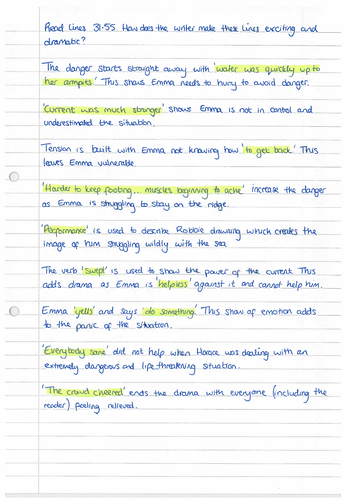 Read lines 31-55. How does the writer make these lines exciting and
dramatic?
The danger starts straight away with 'water was quickly up to
her armpits.' This shows Emma needs to hurry to avoid danger.
'Current was much stronger' shows Emma is not in control and
underestimated the situation.
Tension is built with Emma not knowing how 'to get back.' This
leaves Emma vulnerable.
'Harder to keep footing... muscles beginning to ache' increase the danger
as Emma is struggling to stay on the ridge.
'Performance' is used to describe Robbie drowning which creates the
image of him struggling wildly with the sea.
The verb 'swept' is used to show the power of the current. This
adds drama as Emma is 'helpless' against it and cannot help him.
Emma 'yells' and says 'do something.' This show of emotion adds
to the panic of the situation.
'Everybody sane' did not help when Horace was dealing with an
extremely dangerous and life-threatening situation.
'The crowd cheered' ends the drama with everyone (including the
reader) feeling relieved.